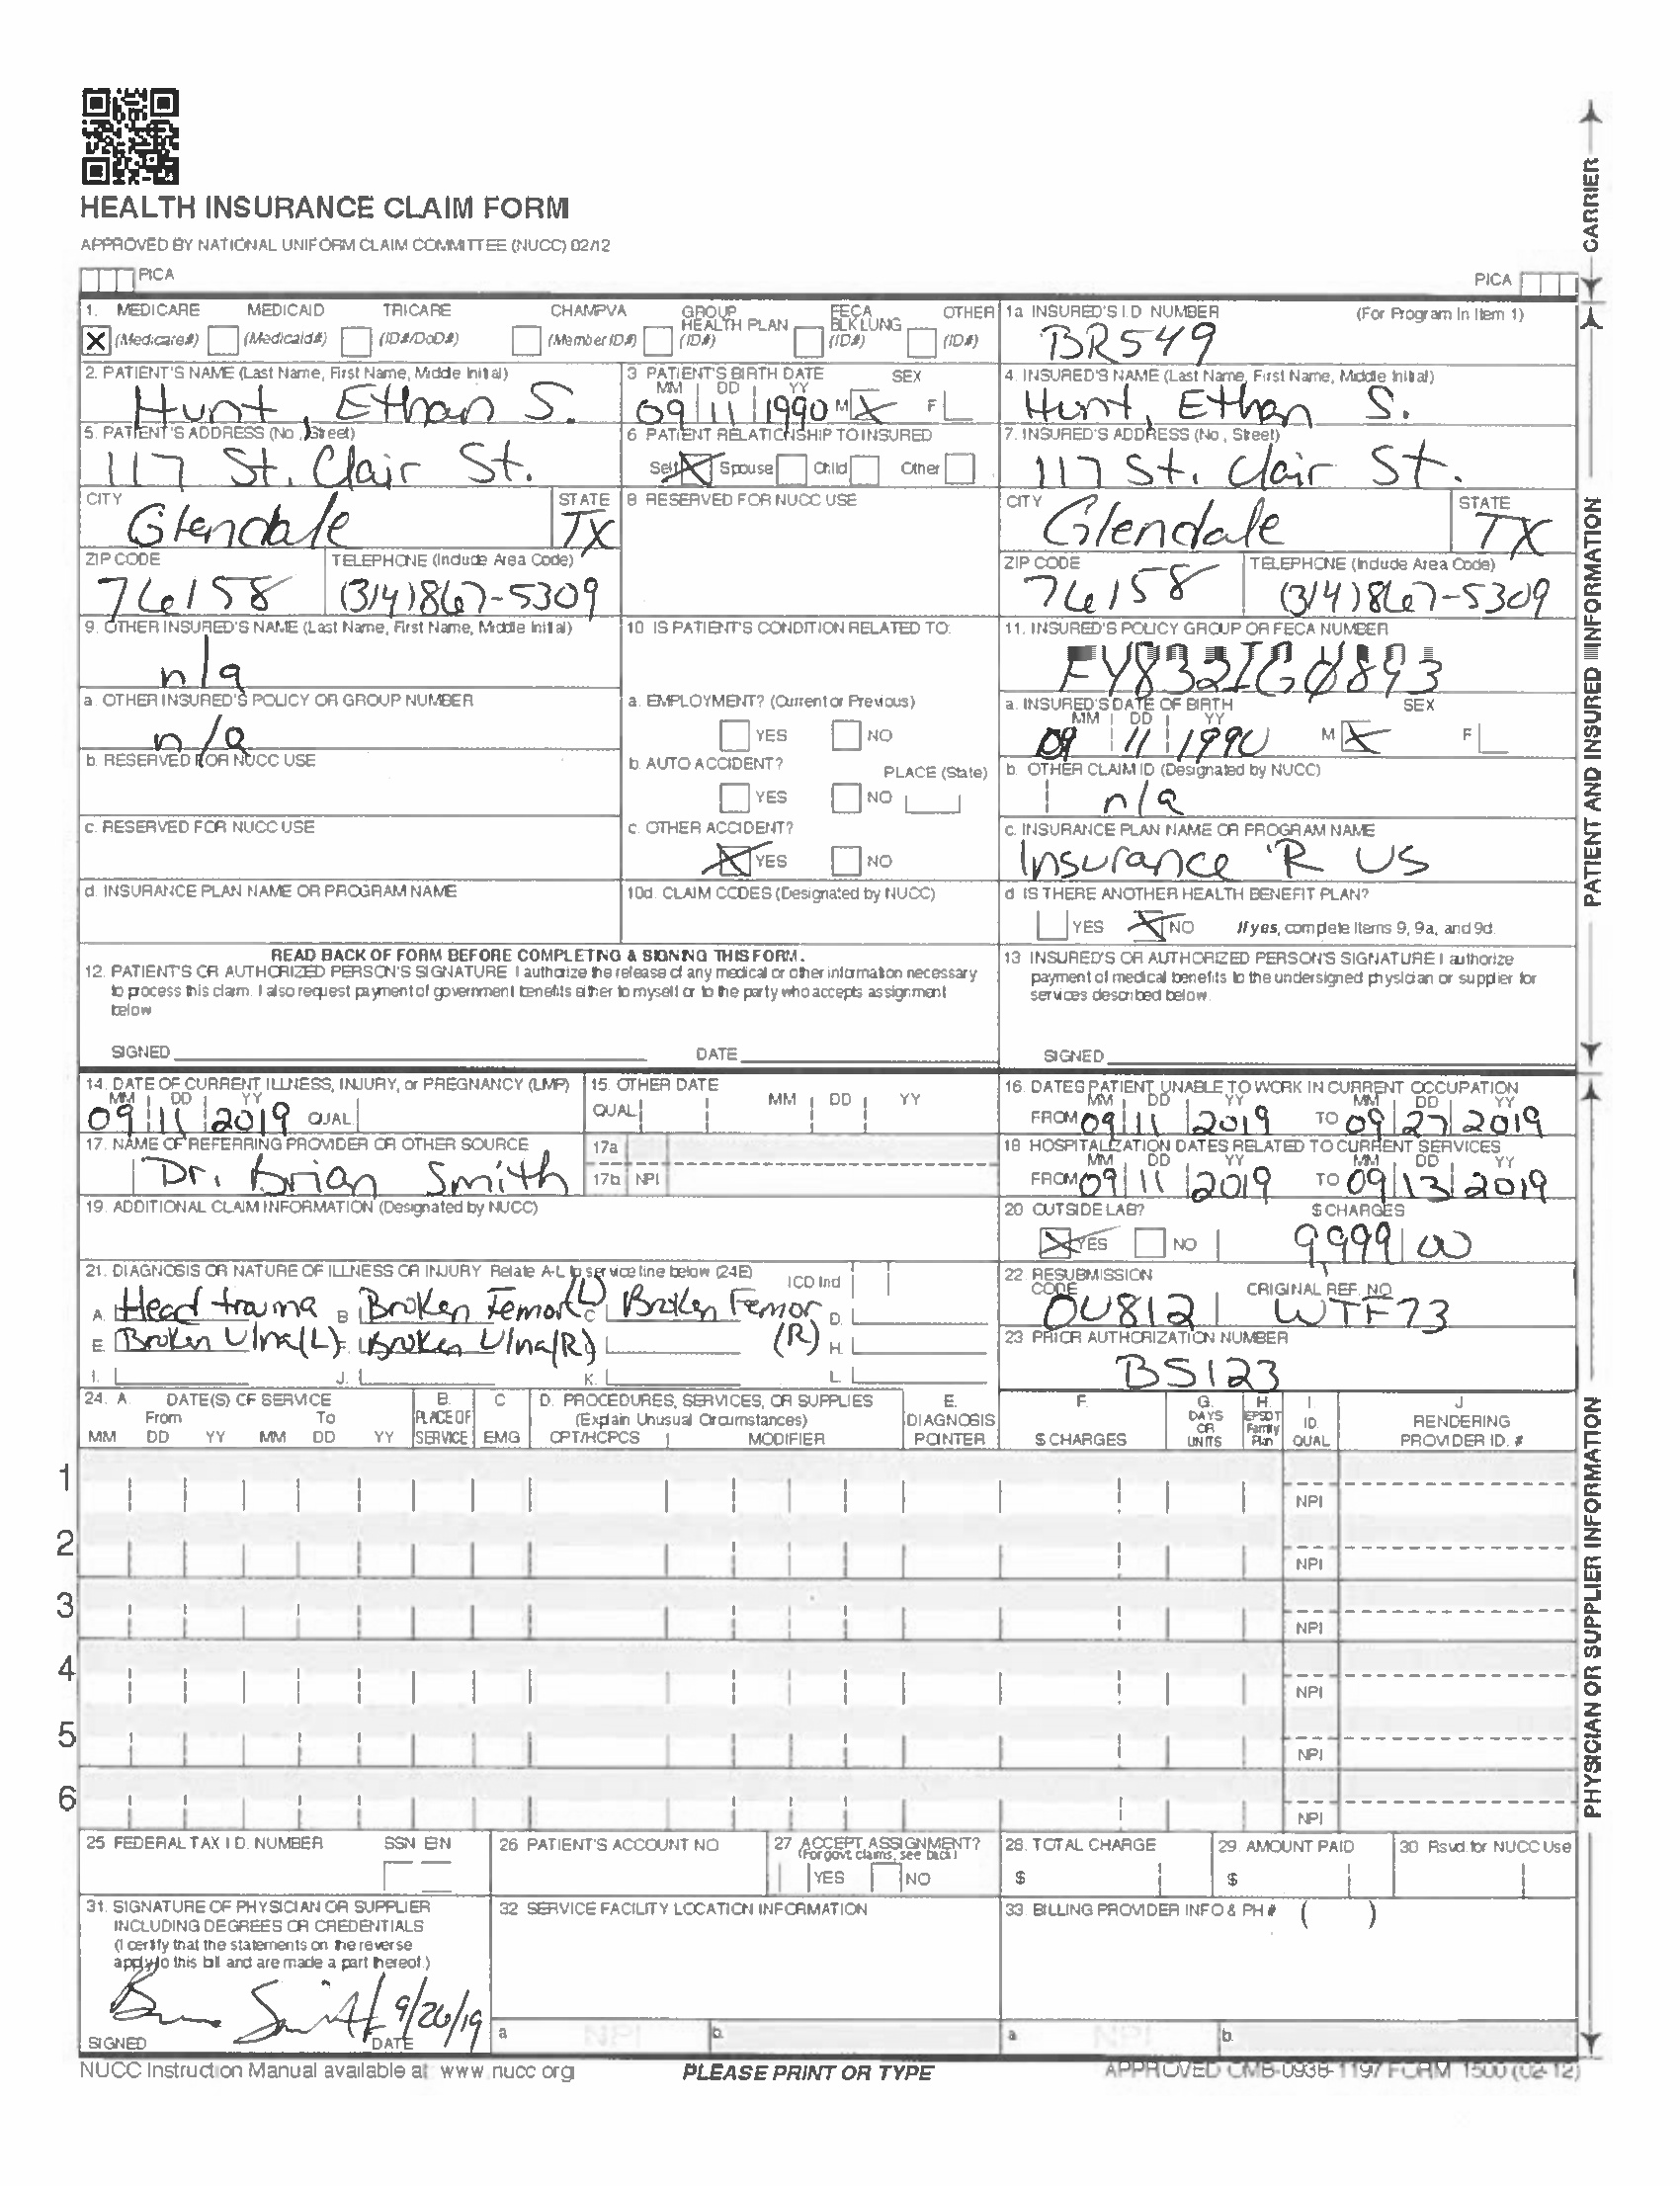 HEALTH INSURANCE CLAIM FORM
APPROVED BY NATIONAL UNIFORM CLAIM COMMITTEE (NUCC) 02/12
PICA
PICA
CARRIER
1. MEDICARE MEDICAID TRICARE CHAMPVA GROUP HEALTH PLAN FECA BLK LUNG OTHER
X (Medicare#) (Medicaid#) (ID#/DoD#) (Member ID#) (ID#) (ID#) (ID#)
1a INSURED'S I.D NUMBER (For Program In Item 1)
BR549
2. PATIENT'S NAME (Last Name, First Name, Middle Initial)
Hunt, Ethan S.
3 PATIENT'S BIRTH DATE SEX
MM DD YY
09 11 1990 M X F
4. INSURED'S NAME (Last Name, First Name, Middle Initial)
Hunt, Ethan S.
5. PATIENT'S ADDRESS (No, Street)
117 St. Clair St.
6 PATIENT RELATIONSHIP TO INSURED
Self X Spouse Child Other
7. INSURED'S ADDRESS (No, Street)
117 St. Clair St.
CITY STATE
Glendale TX
8 RESERVED FOR NUCC USE
CITY STATE
Glendale TX
ZIP CODE TELEPHONE (Include Area Code)
76158 (314)867-5309
ZIP CODE TELEPHONE (Include Area Code)
76158 (314)867-5309
9. OTHER INSURED'S NAME (Last Name, First Name, Middle Initial)
n/a
10 IS PATIENT'S CONDITION RELATED TO:
11. INSURED'S POLICY GROUP OR FECA NUMBER
FY832IG0893
a. OTHER INSURED'S POLICY OR GROUP NUMBER
n/a
a. EMPLOYMENT? (Current or Previous)
YES NO
a. INSURED'S DATE OF BIRTH SEX
MM DD YY
09 11 1990 M X F
b. RESERVED FOR NUCC USE
b. AUTO ACCIDENT? PLACE (State)
YES NO
b. OTHER CLAIM ID (Designated by NUCC)
n/a
c. RESERVED FOR NUCC USE
c. OTHER ACCIDENT?
X YES NO
c. INSURANCE PLAN NAME OR PROGRAM NAME
Insurance 'R US
d. INSURANCE PLAN NAME OR PROGRAM NAME
10d. CLAIM CODES (Designated by NUCC)
d IS THERE ANOTHER HEALTH BENEFIT PLAN?
YES X NO If yes, complete Items 9, 9a, and 9d.
PATIENT AND INSURED INFORMATION
READ BACK OF FORM BEFORE COMPLETING & SIGNING THIS FORM.
12. PATIENT'S OR AUTHORIZED PERSON'S SIGNATURE I authorize the release of any medical or other information necessary
to process this claim. I also request payment of government benefits either to myself or to the party who accepts assignment
below
SIGNED DATE
13 INSURED'S OR AUTHORIZED PERSON'S SIGNATURE I authorize
payment of medical benefits to the undersigned physician or supplier for
services described below.
SIGNED
14. DATE OF CURRENT ILLNESS, INJURY, or PREGNANCY (LMP)
MM DD YY
09 11 2019 QUAL
15. OTHER DATE
QUAL MM DD YY
16. DATES PATIENT UNABLE TO WORK IN CURRENT OCCUPATION
MM DD YY MM DD YY
FROM 09 11 2019 TO 09 27 2019
17. NAME OF REFERRING PROVIDER OR OTHER SOURCE
Dr. Brian Smith
17a
17b NPI
18 HOSPITALIZATION DATES RELATED TO CURRENT SERVICES
MM DD YY MM DD YY
FROM 09 11 2019 TO 09 13 2019
19. ADDITIONAL CLAIM INFORMATION (Designated by NUCC)
20 OUTSIDE LAB? $ CHARGES
X YES NO 9999 00
21. DIAGNOSIS OR NATURE OF ILLNESS OR INJURY Relate A-L to service line below (24E) ICD Ind
A. Head trauma B Broken Femor (L) C Broken Femor (R) D.
E. Broken Ulna(L) F. Broken Ulna(R) G H.
I. J. K. L.
22 RESUBMISSION CODE ORIGINAL REF. NO
OU812 WTF73
23 PRIOR AUTHORIZATION NUMBER
BS123
24. A. DATE(S) OF SERVICE B. PLACE OF SERVICE C EMG D. PROCEDURES, SERVICES, OR SUPPLIES E. DIAGNOSIS POINTER F. $ CHARGES G. DAYS OR UNITS H. EPSDT Family Plan I. ID. QUAL J RENDERING PROVIDER ID. #
From To (Explain Unusual Circumstances)
MM DD YY MM DD YY CPT/HCPCS MODIFIER
1 NPI
2 NPI
3 NPI
4 NPI
5 NPI
6 NPI
PHYSICIAN OR SUPPLIER INFORMATION
25 FEDERAL TAX I D. NUMBER SSN EIN
26 PATIENT'S ACCOUNT NO
27 ACCEPT ASSIGNMENT?
(For govt claims, see back)
YES NO
28. TOTAL CHARGE
$
29. AMOUNT PAID
$
30 Rsvd for NUCC Use
31. SIGNATURE OF PHYSICIAN OR SUPPLIER
INCLUDING DEGREES OR CREDENTIALS
(I certify that the statements on the reverse
apply to this bill and are made a part thereof.)
9/26/19
SIGNED DATE
32 SERVICE FACILITY LOCATION INFORMATION
a NPI b.
33. BILLING PROVIDER INFO & PH # ( )
a NPI b.
NUCC Instruction Manual available at: www.nucc.org
PLEASE PRINT OR TYPE
APPROVED OMB-0938-1197 FORM 1500 (02-12)